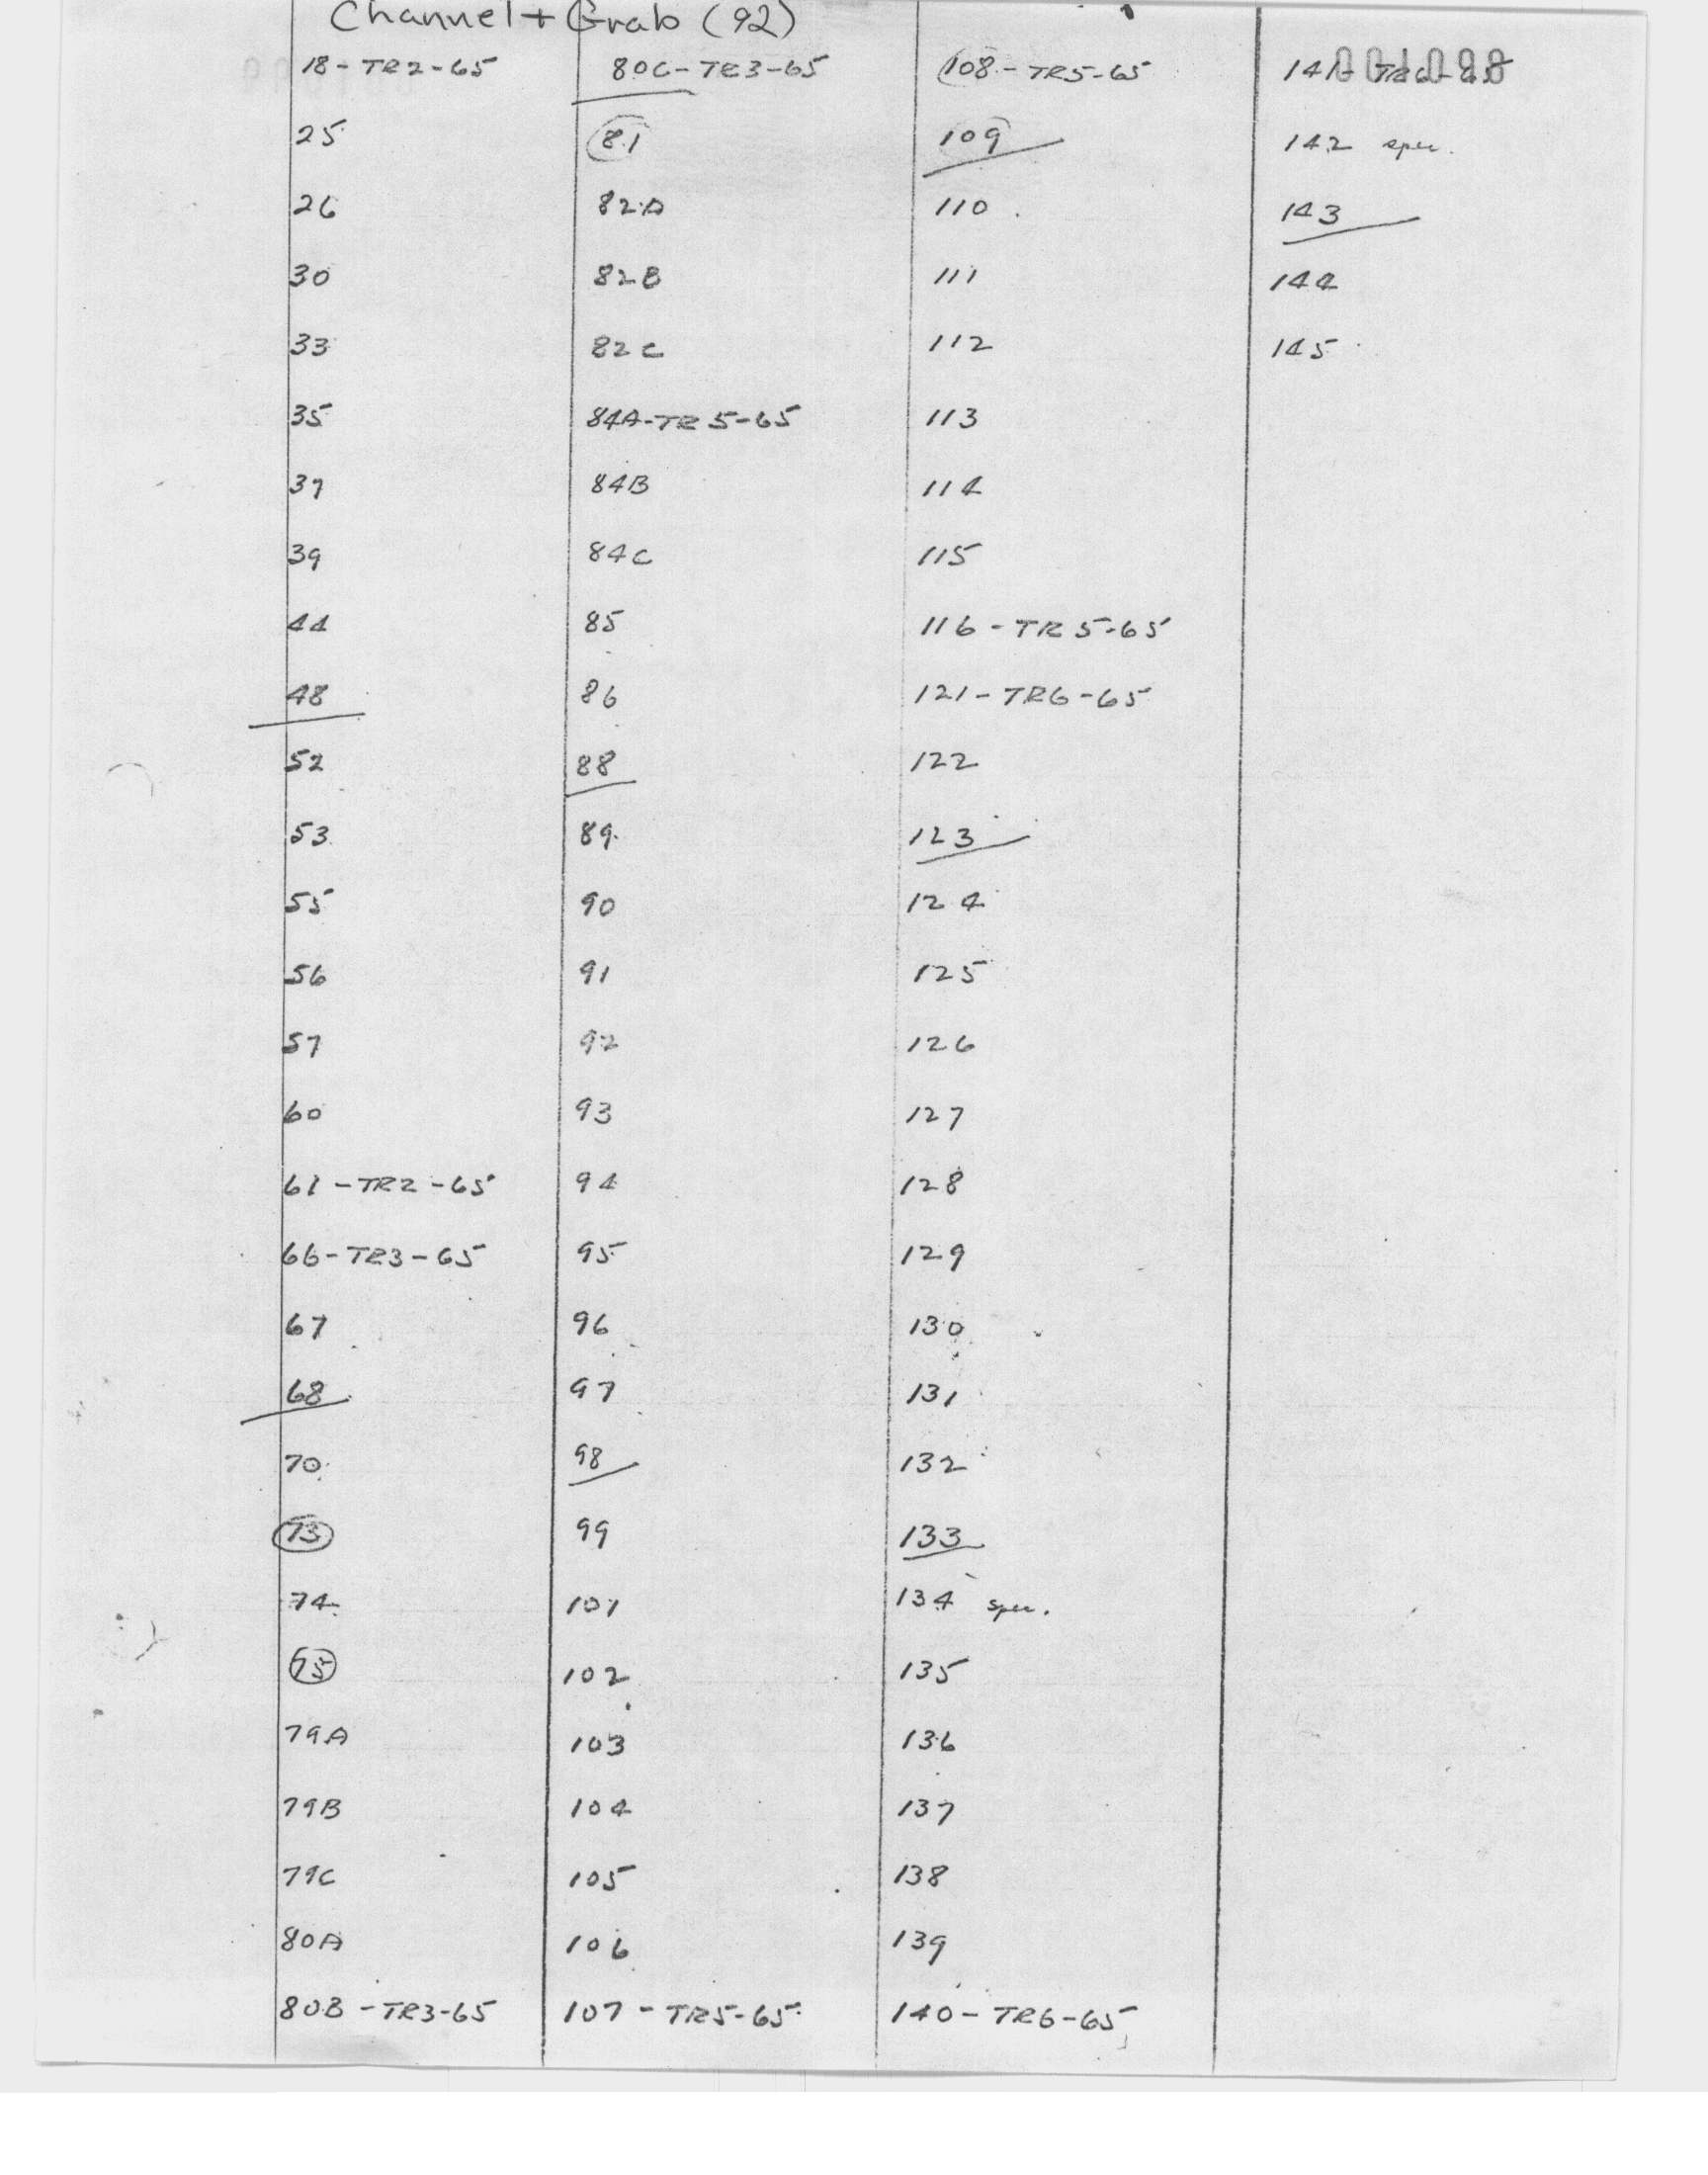 Channel + Grab (92)
18-TR2-65
25
26
30
33
35
37
39
44
48
52
53
55
56
57
60
61-TR2-65
66-TR3-65
67
68
70
73
74
75
79A
79B
79C
80A
80B-TR3-65
80C-TR3-65
81
82A
82B
82C
84A-TR5-65
84B
84C
85
86
88
89
90
91
92
93
94
95
96
97
98
99
101
102
103
104
105
106
107-TR5-65
108-TR5-65
109
110
111
112
113
114
115
116-TR5-65
121-TR6-65
122
123
124
125
126
127
128
129
130
131
132
133
134 spec.
135
136
137
138
139
140-TR6-65
141-TR6-65
142 spec.
143
144
145